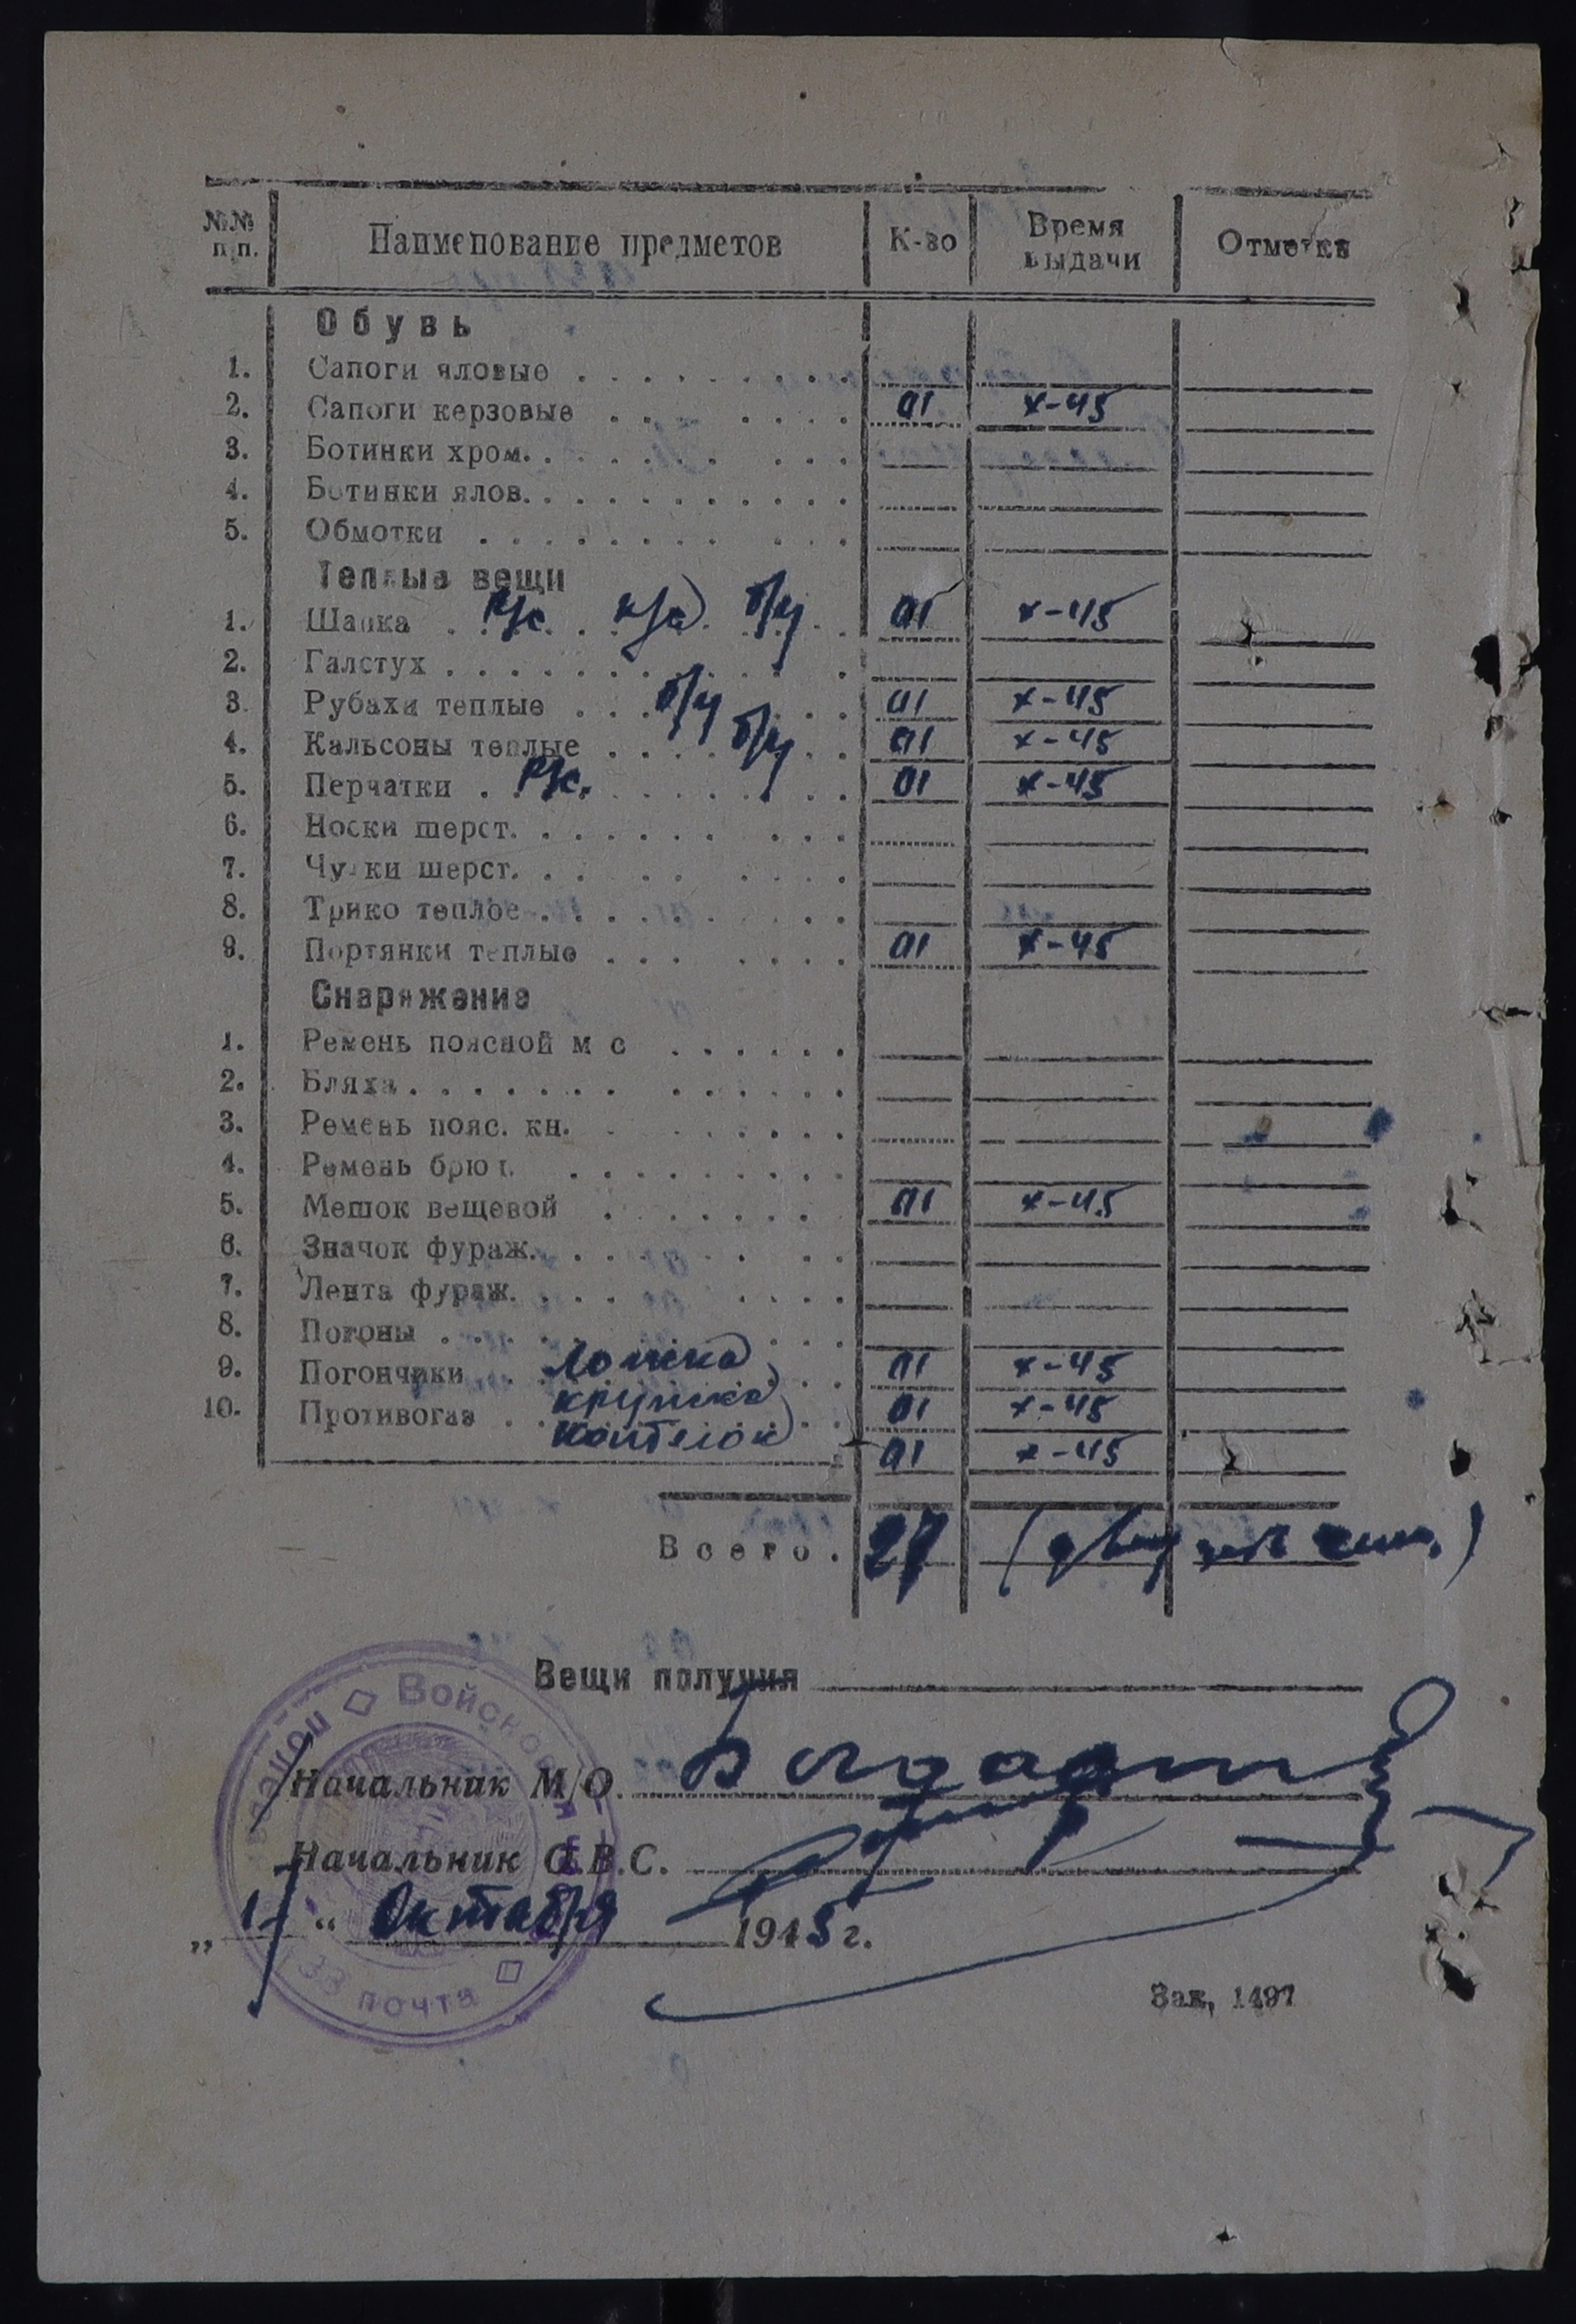 №№ п/п. Наименование предметов К-во Время выдачи Отметка
Обувь
1. Сапоги яловые
2. Сапоги керзовые 01 X-45
3. Ботинки хром.
4. Ботинки ялов.
5. Обмотки
Теплые вещи
1. Шапка р/с. к/а б/у 01 X-45
2. Галстух
3. Рубахи теплые б/у 01 X-45
4. Кальсоны теплые б/у 01 X-45
5. Перчатки р/с. 01 X-45
6. Носки шерст.
7. Чулки шерст.
8. Трико теплое
9. Портянки теплые 01 X-45
Снаряжение
1. Ремень поясной м с
2. Бляха
3. Ремень пояс. кн.
4. Ремень брюч.
5. Мешок вещевой 01 X-45
6. Значок фураж.
7. Лента фураж.
8. Погоны
9. Погончики Ложка 01 X-45
10. Противогаз кружка 01 X-45
Котелок 01 X-45
Всего. 27
Вещи получил
Начальник М/О.
Начальник О.В.С.
„ 1 “ Октября 1945 г.
почта
Зак, 1497